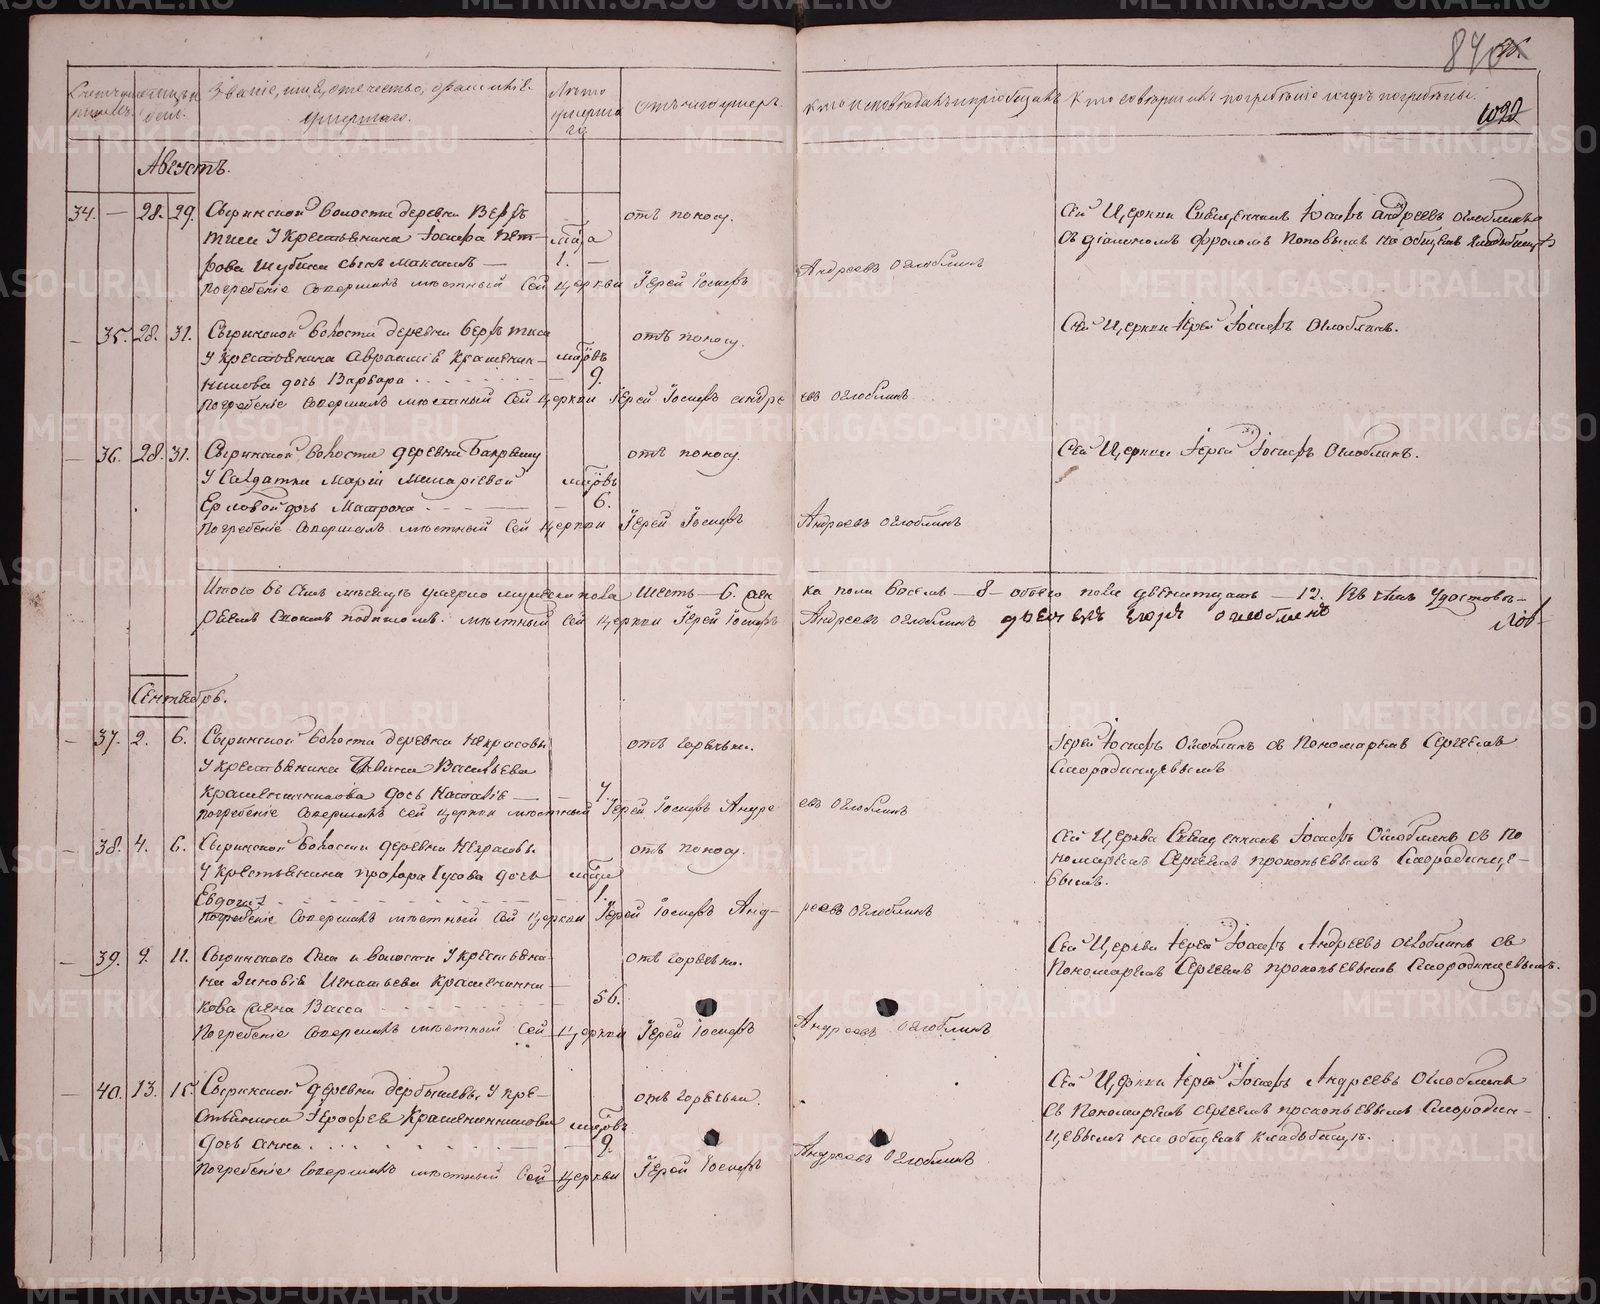 840
1092
Мѣсяцъ и день.
Званіе, имя, отечество, фамиліе умершаго.
Лѣта умершаго
Отъ чего умеръ.
Кто исповѣдалъ и пріобщалъ
Кто совершилъ погребѣніе и гдѣ погребѣны.
Августъ.
34. — 28. 29. Сыринской волости деревни
у Крестьянина Іосифа Пет-
рова Шубина сынъ Максимъ —
года
1. —
отъ поносу.
Сей Церкви Священникъ Іосифъ Андреевъ Оглоблинъ
съ діакономъ Фроломъ Поповымъ на общемъ кладбищѣ
погребеніе совершалъ мѣстный сей церкви Іерей Іосифъ Андреевъ Оглоблинъ
— 35. 28. 31. Сыринской волости деревни
у Крестьянина Авраамія Крашенин-
никова дочь Варвара
9.
отъ поносу.
Сей Церкви Іерей Іосифъ Оглоблинъ.
погребеніе совершалъ мѣстный сей церкви Іерей Іосифъ Андреевъ Оглоблинъ
— 36. 28. 31. Сыринской волости деревни
у Салдатки Маріи Макаріевой
дочь Матрона
6.
отъ поносу.
Сей Церкви Іерей Іосифъ Оглоблинъ.
погребеніе совершалъ мѣстный сей церкви Іерей Іосифъ Андреевъ Оглоблинъ
Итого въ семъ мѣсяцѣ умерло мужеска пола шесть — 6. жен
ска пола восемь — 8 — обоего пола — 12. Въ чемъ удостовѣ-
ряемъ своимъ подписомъ. мѣстный сей церкви Іерей Іосифъ Андреевъ Оглоблинъ Оглоблинъ
Сентябрь.
— 37. 2. 6. Сыринской волости деревни Некрасовы
у крестьянина Васильева
Крашенинникова дочь Наталія — 4
отъ горячки.
Іерей Іосифъ Оглоблинъ съ Пономаремъ Сергѣемъ
Смородинцевымъ
погребеніе совершалъ сей церкви мѣстный Іерей Іосифъ Андреевъ Оглоблинъ
— 38. 4. 6. Сыринской волости деревни Некрасовы
у крестьянина Прохора Гусова дочь
Евдокія
1.
отъ поносу.
Сей Церкви Священникъ Іосифъ Оглоблинъ съ По
номаремъ Сергѣемъ Прокопьевымъ Смородинце-
вымъ.
погребеніе совершалъ мѣстный сей церкви Іерей Іосифъ Андреевъ Оглоблинъ
— 39. 9. 11. Сыринского села и волости у крестьяни-
на Зиновія Игнатьева Крашенинни-
кова жена Васса
56.
отъ горячки.
Сей Церкви Іерей Іосифъ Андреевъ Оглоблинъ съ
Пономаремъ Сергѣемъ Прокопьевымъ Смородинцевымъ.
погребеніе совершалъ мѣстный сей церкви Іерей Іосифъ Андреевъ Оглоблинъ
— 40. 13. 15. Сыринской деревни у кре-
стьянина Іерофея Крашенинникова
дочь Анна
9.
отъ горячки.
Сей Церкви Іерей Іосифъ Андреевъ Оглоблинъ
съ Пономаремъ Сергѣемъ Прокопьевымъ Смородин-
цевымъ на общемъ кладбищѣ.
погребеніе совершалъ мѣстный сей церкви Іерей Іосифъ Андреевъ Оглоблинъ
METRIKI.GASO-URAL.RU